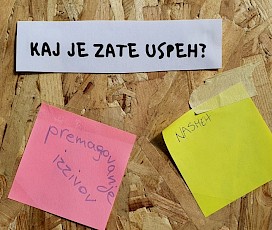 KAJ JE ZATE USPEH?
premagovanje
izzivov
NASMEH